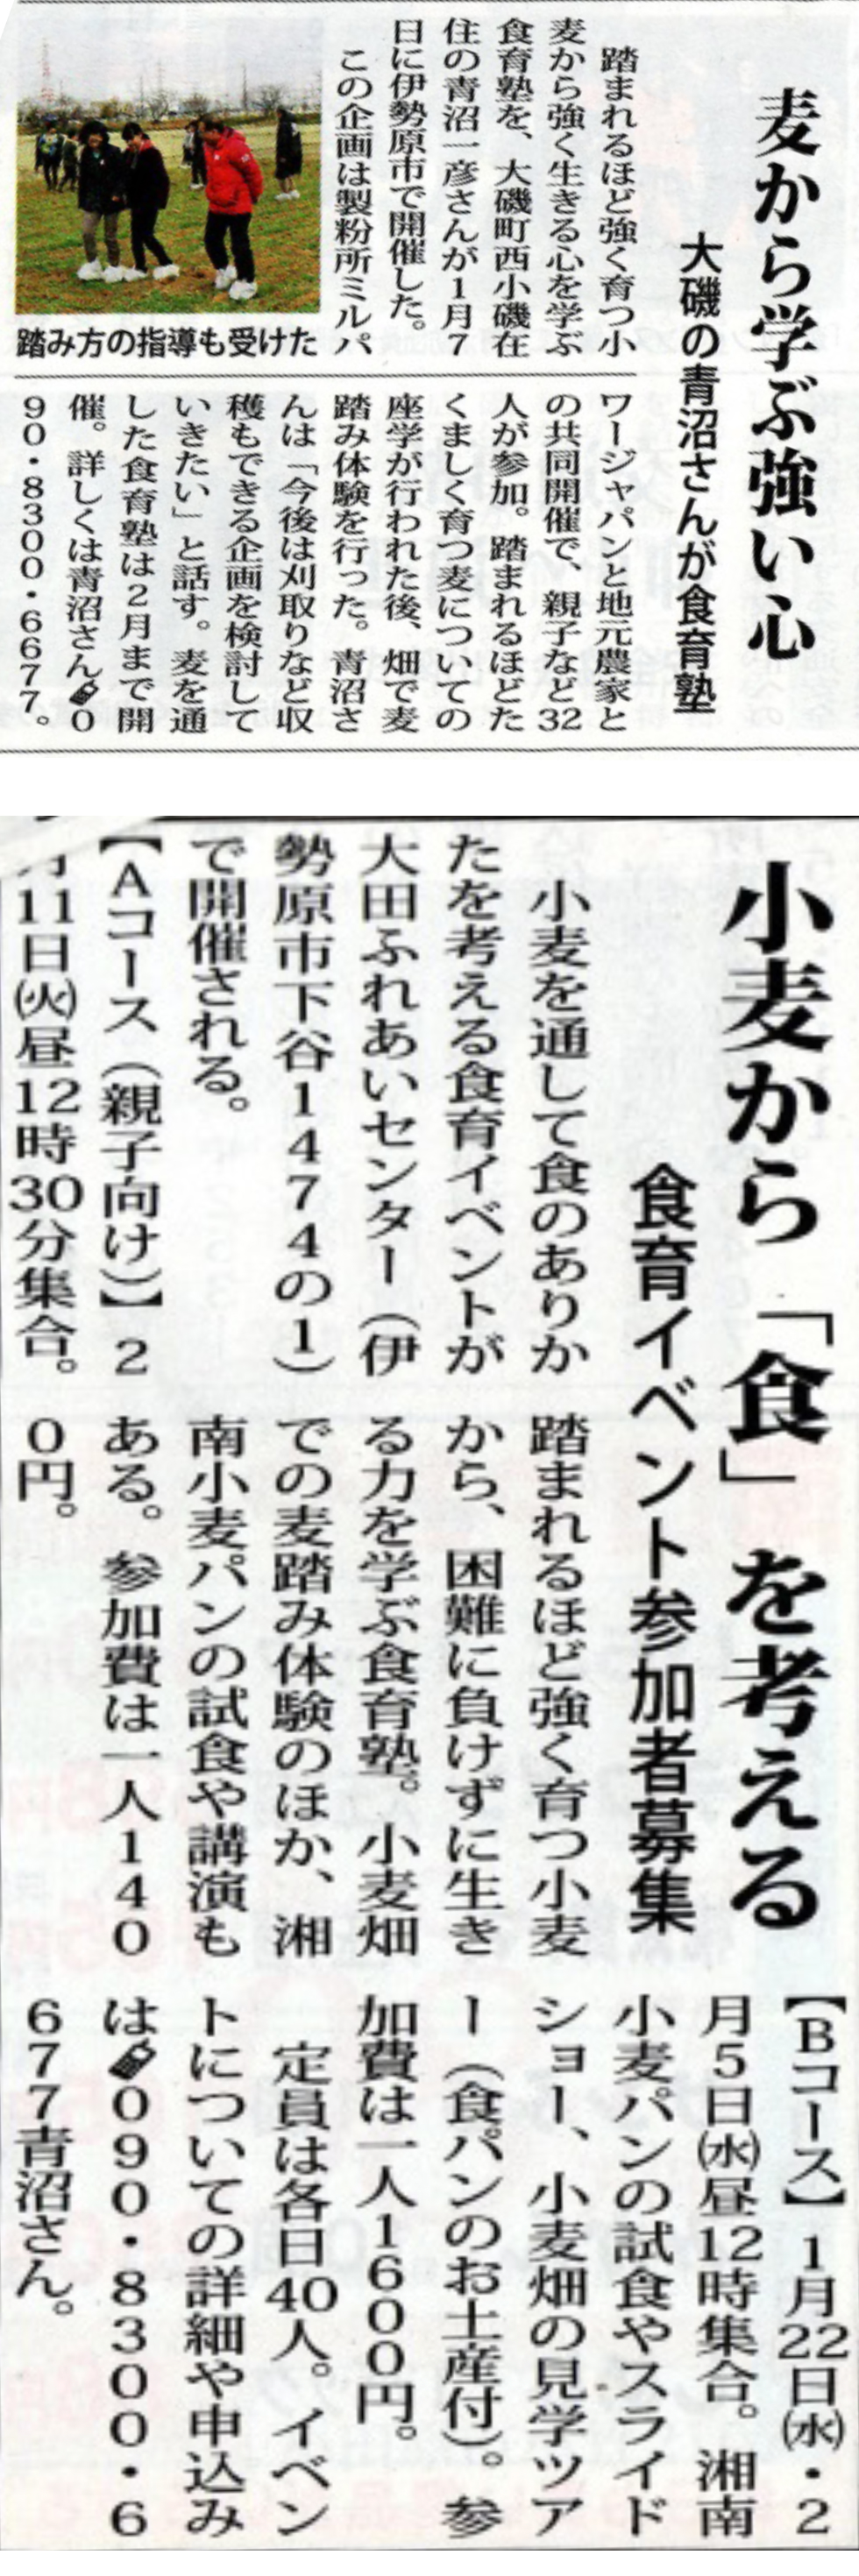 麦から学ぶ強い心
大磯の青沼さんが食育塾
踏まれるほど強く育つ小
麦から強く生きる心を学ぶ
食育塾を、大磯町西小磯在
住の青沼一彦さんが1月7
日に伊勢原市で開催した。
この企画は製粉所ミルパ
ワージャパンと地元農家と
の共同開催で、親子など32
人が参加。踏まれるほどた
くましく育つ麦についての
座学が行われた後、畑で麦
踏み体験を行った。青沼さ
んは「今後は刈取りなど収
穫もできる企画を検討して
いきたい」と話す。麦を通
した食育塾は2月まで開
催。詳しくは青沼さん0
90・8300・6677。
踏み方の指導も受けた
小麦から「食」を考える
食育イベント参加者募集
小麦を通して食のありか
たを考える食育イベントが
大田ふれあいセンター(伊
勢原市下谷1474の1)
で開催される。
【Aコース(親子向け)】2
月11日㈫昼12時30分集合。
踏まれるほど強く育つ小麦
から、困難に負けずに生き
る力を学ぶ食育塾。小麦畑
での麦踏み体験のほか、湘
南小麦パンの試食や講演も
ある。参加費は一人140
0円。
【Bコース】1月22日㈬・2
月5日㈬昼12時集合。湘南
小麦パンの試食やスライド
ショー、小麦畑の見学ツア
ー(食パンのお土産付)。参
加費は一人1600円。
定員は各日40人。イベン
トについての詳細や申込み
は090・8300・6
677青沼さん。